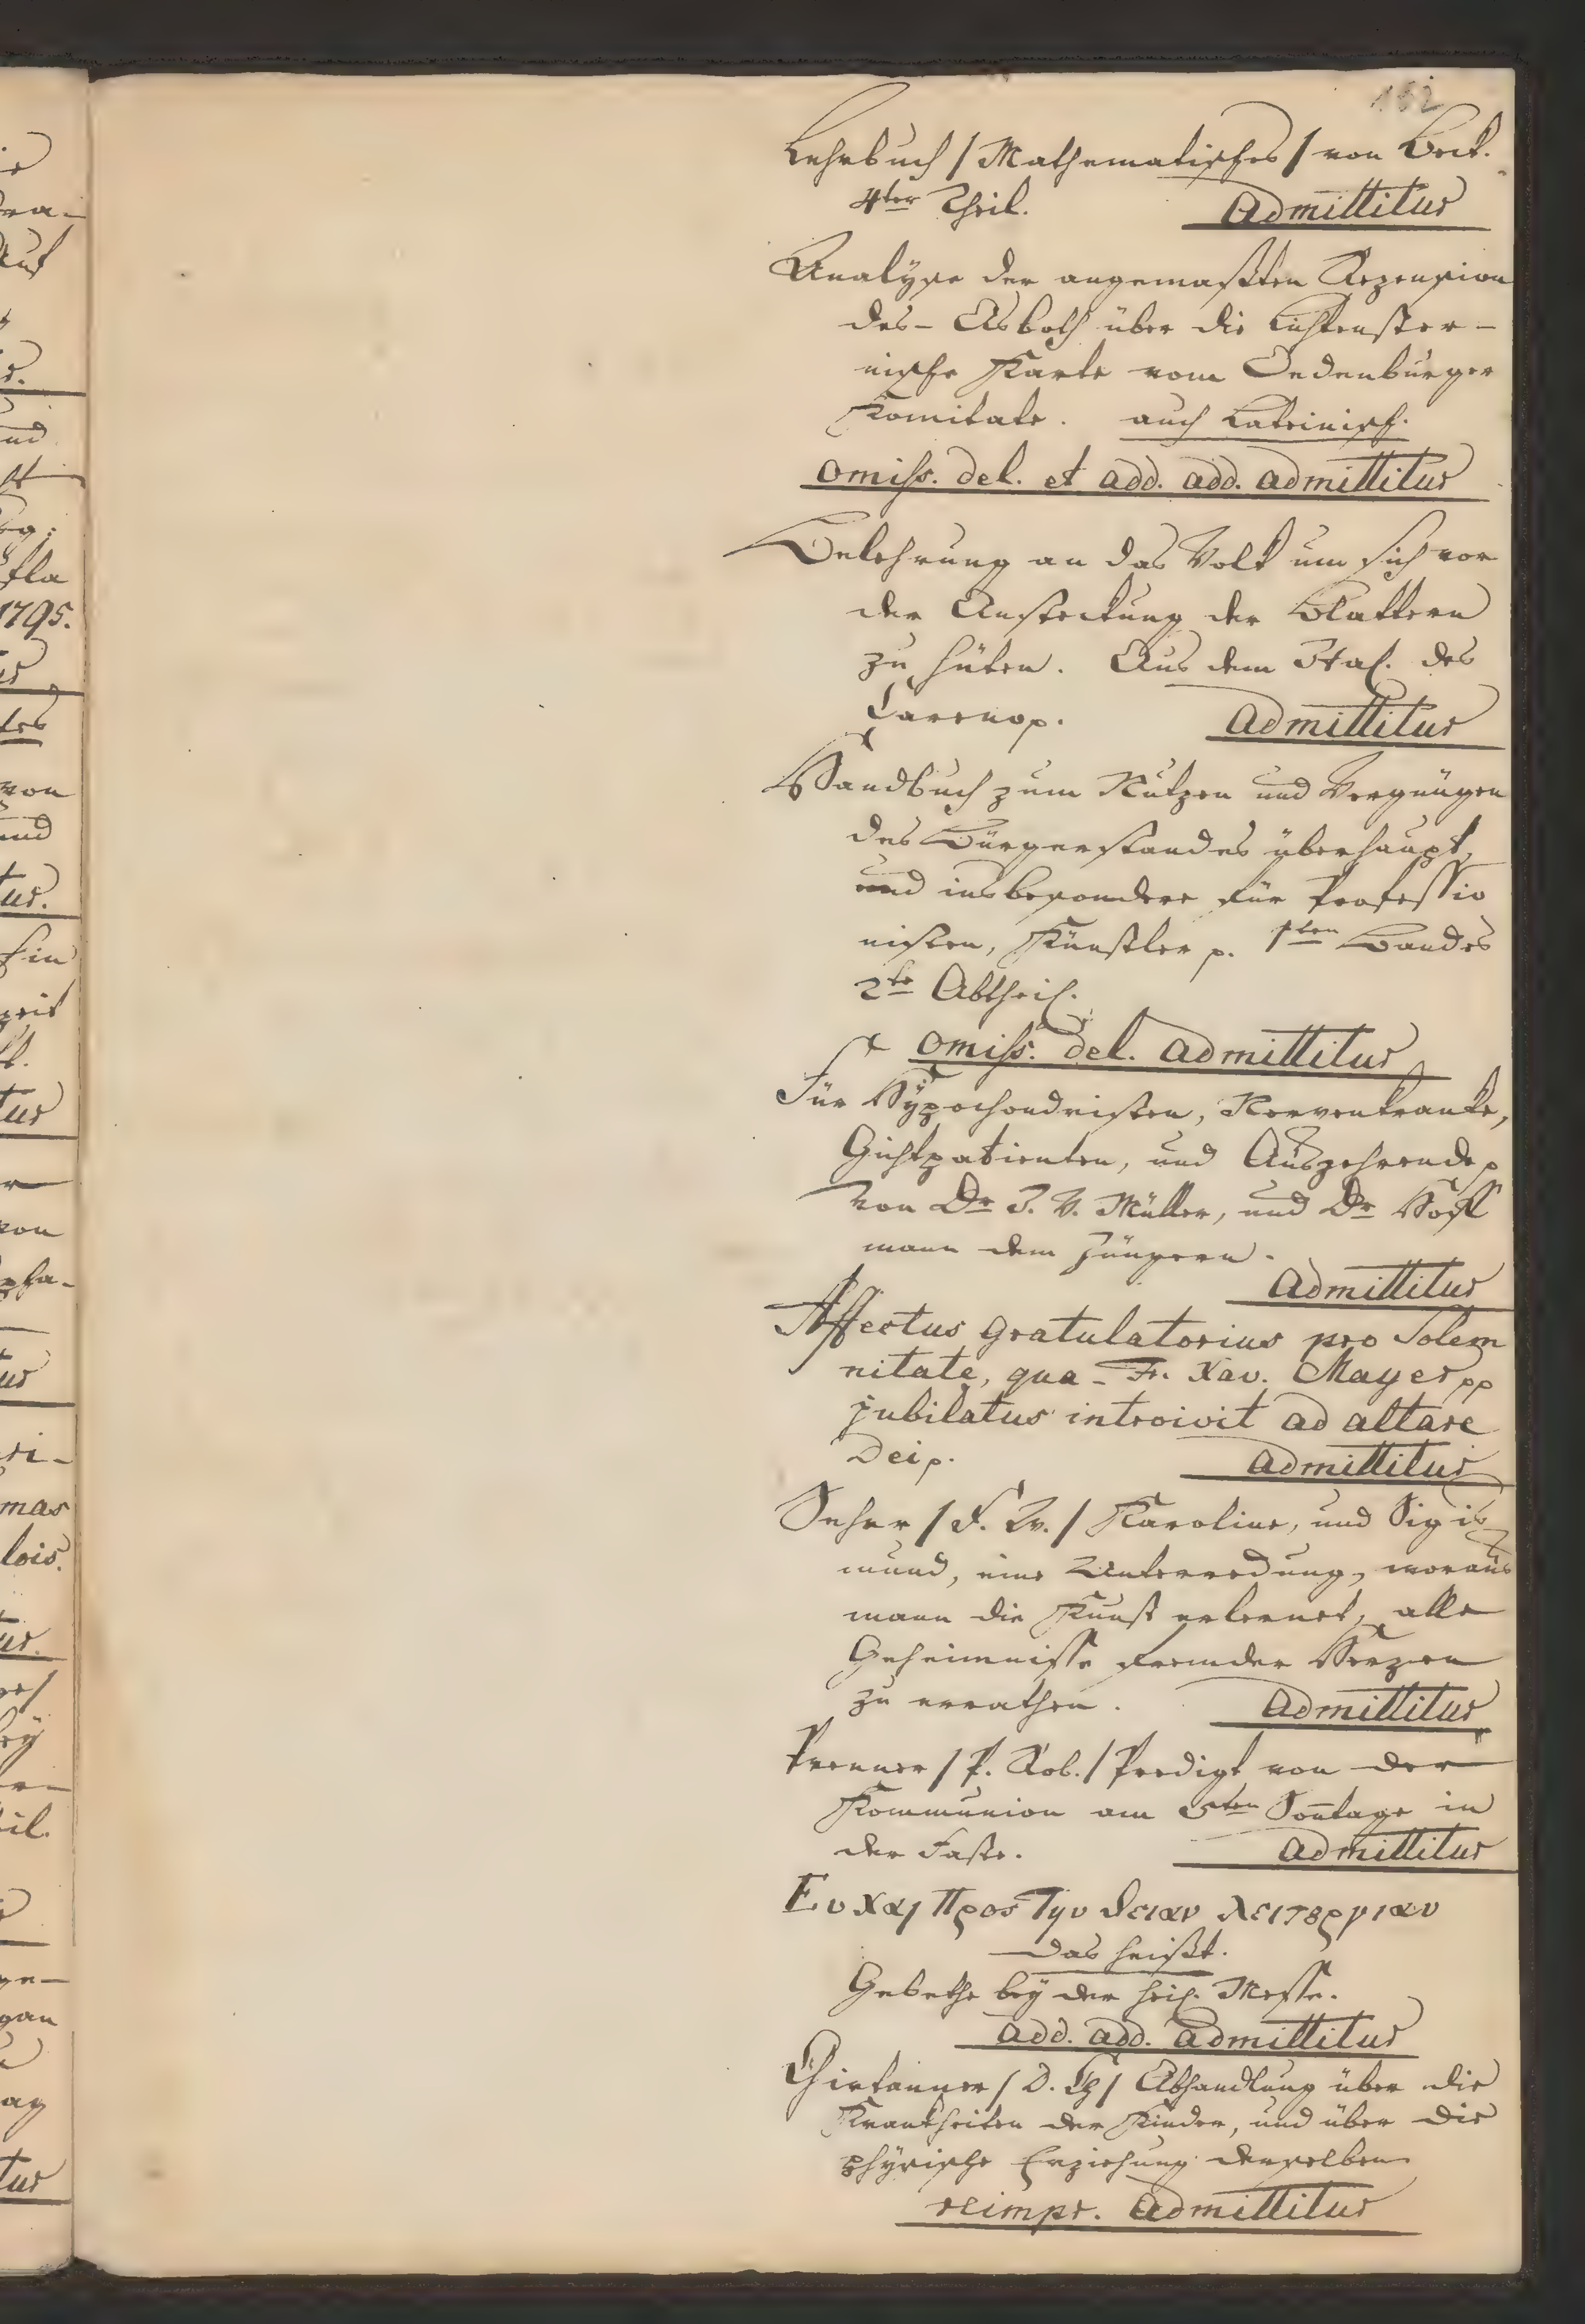 162
Lehrbuch / Mathematisches / von Beck.
4ter Theil. Admittitur
Analyse der angemaßten Rezension
des – Asboth über die Lichtenster–
nische Karte vom Oedenburger
Komitate. auch Lateinisch.
omiss. del. et add. add. admittitur
Belehrung an das Volk um sich vor
der Ansteckung der Blattern
zu hüten. Aus dem Ital. des
Careno p. Admittitur
Handbuch zum Nutzen und Vergnügen
des Bürgerstandes überhaupt,
und insbesondere für Professio
nisten, Künstler p. 1ten Bandes
2te Abtheil.
omiss. del. admittitur
Für Hypochondristen, Nervenkranke,
Gichtpatienten, und Auszehrende p
von Dr J. V. Müller, und Dr Hoff
mann dem Jüngern.
Admittitur
Affectus gratulatorius pro Solem
nitate, qua – Fr. Xav. Mayer pp
jubilatus introivit ad altare
Dei p. admittitur
Seher / F. Zv. / Karoline, und Sigis
mund, eine Unterredung, woraus
mann die Kunst erlernet, alle
Geheimnisse fremder Herzen
zu errathen. Admittitur
Prenner / P. Rob. / Predigt von der
Kommunion am 5ten Soñtage in
der Faste. Admittitur
Ευχαι Προς Τηυ θειαν λειτȣργιαν
das heißt.
Gebethe bey der heil. Messe.
add. add. admittitur
Girtanner / D. Ch / Abhandlung über die
Krankheiten der Kinder, und über die
physische Erziehung derselben
reimpr. Admittitur